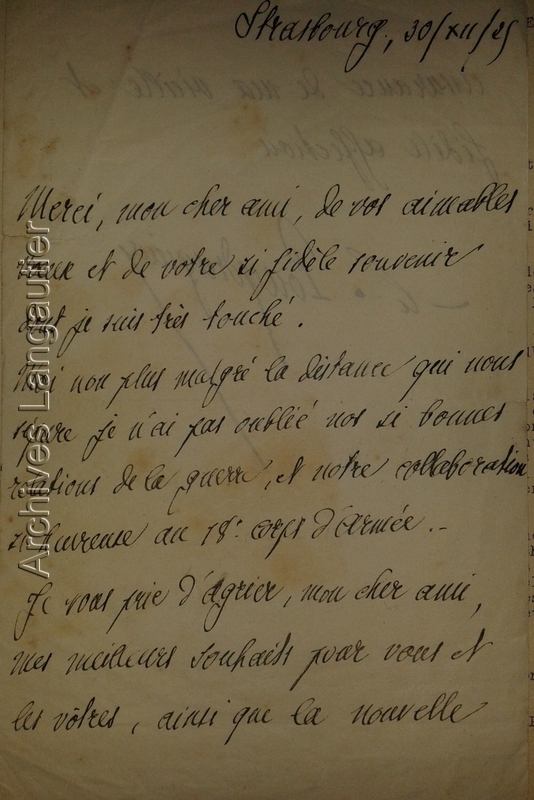 Strasbourg, 30/XII/25
Merci, mon cher ami, de vos aimables
vœux et de votre si fidèle souvenir
dont je suis très touché.
Moi non plus malgré la distance qui nous
sépare je n'ai pas oublié nos si bonnes
relations de la guerre, et notre collaboration
si heureuse au 18e corps d'armée.-
Je vous prie d'agréer, mon cher ami,
mes meilleurs souhaits pour vous et
les vôtres, ainsi que la nouvelle
assurance de ma vieille et
fidèle affection
Archives Langautier